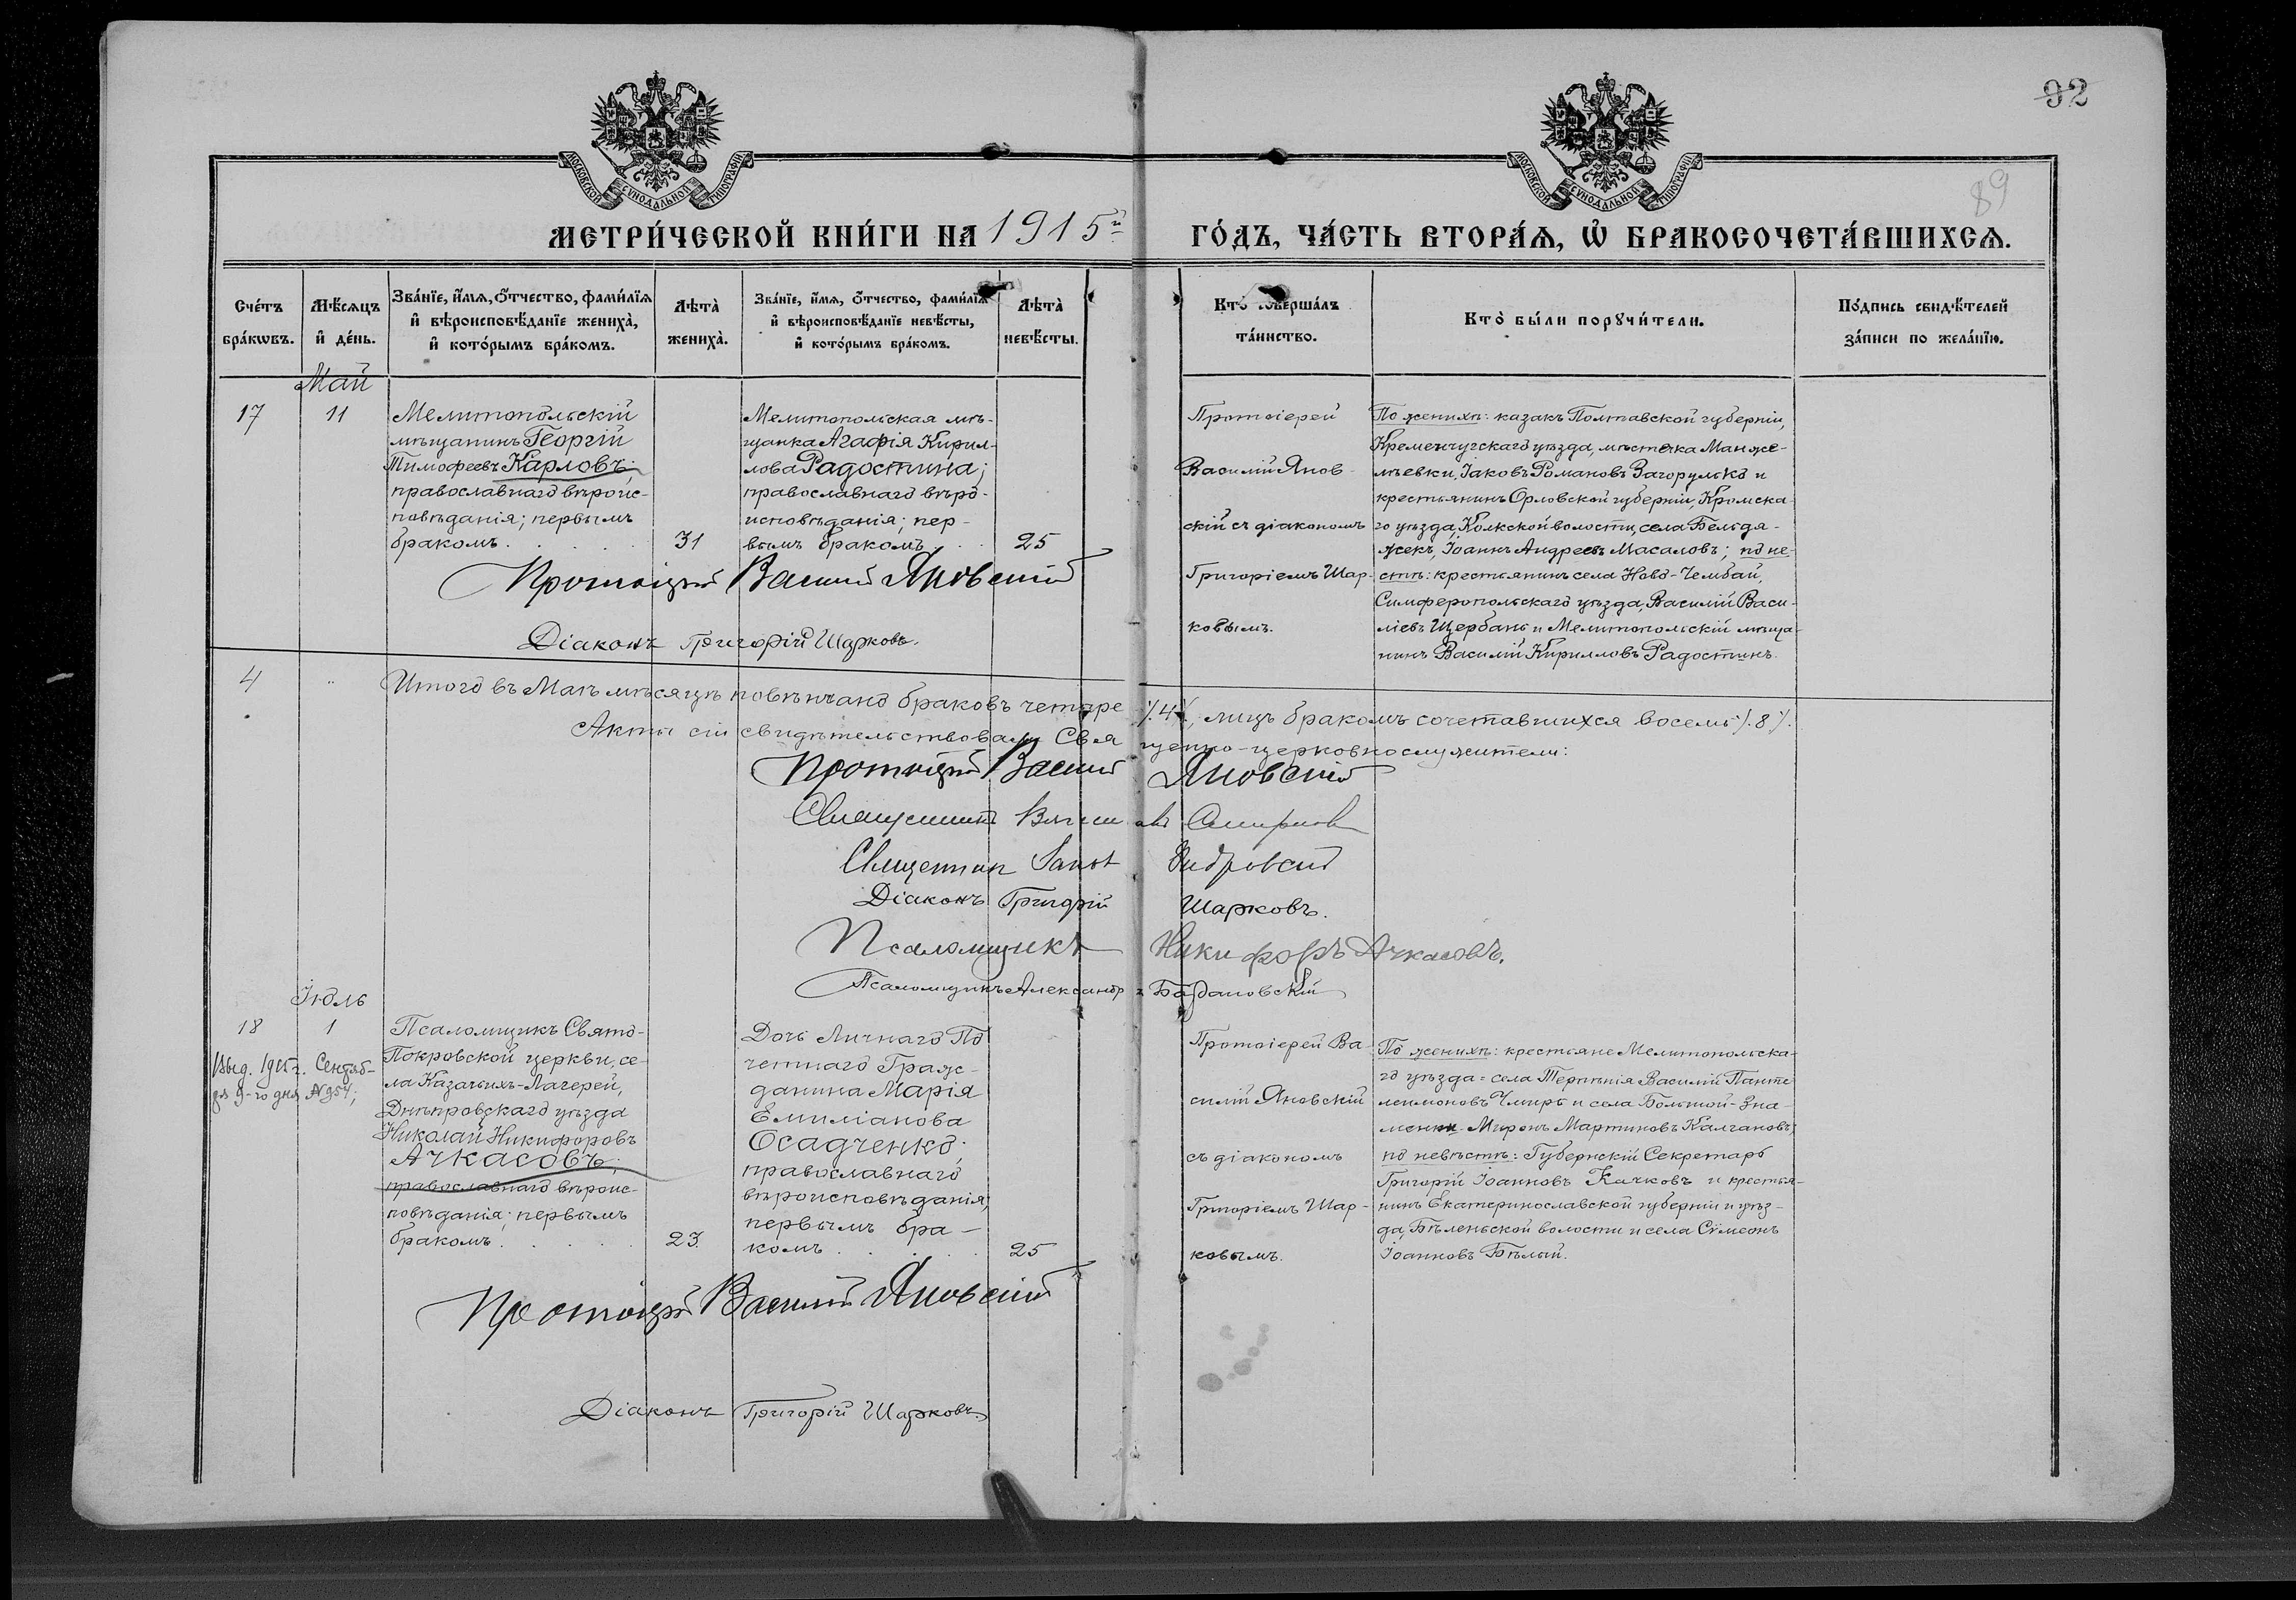 92
89
МОСКОВСКОЙ СУНОДАЛЬНОЙ ТИПОГРАФІИ
МОСКОВСКОЙ СУНОДАЛЬНОЙ ТИПОГРАФІИ
МЕТРИ́ЧЕСКОЙ КНИ́ГИ НА 1915й
ГО́ДЪ, ЧА́СТЬ ВТОРА́Ѧ, Ѡ БРАКОСОЧЕТА́ВШИХСѦ.
Сче́тъ бра́кѡвъ.
Мѣ́сѧцъ и҆ де́нь.
Зва́нїе, и҆́мѧ, ѻ҆́тчество, фами́лїѧ
и҆ вѣроисповѣ́данїе жениха̀,
и҆ кото́рымъ бра́комъ.
Лѣта̀ жениха̀.
Зва́нїе, и҆́мѧ, ѻ҆́тчество, фами́лїѧ
и҆ вѣроисповѣ́данїе невѣ́сты,
и҆ кото́рымъ бра́комъ.
Лѣта̀ невѣ́сты.
Кто̀ соверша́лъ та́инство.
Кто̀ бы́ли порꙋчи́тели.
По́дпись свидѣ́телей за́писи по жела́нїю.
Май
17
11
Мелитопольскій
мѣщанинъ Георгій
Тимофеевъ Карловъ;
православнаго вѣроис-
повѣданія; первымъ
бракомъ.
31
Мелитопольская мѣ-
щанка Агафія Кирил-
лова Радостина;
православнаго вѣро-
исповѣданія; пер-
вымъ бракомъ.
25
Протоіерей
Василій Янов-
скій съ діакономъ
Григоріемъ Шар-
ковымъ.
По женихѣ: казакъ Полтавской губерніи,
Кременчугскаго уѣзда, мѣстечка Манже-
лѣевки, Іаковъ Романовъ Загорулько и
крестьянинъ Орловской губерніи, Кромска-
го уѣзда, Колкской волости, села Бельдя-
жекъ, Іоаннъ Андреевъ Масаловъ; по не-
стѣ: крестьянинъ села Ново-Чембай,
Симферопольскаго уѣзда, Василій Васи-
ліевъ Щербань и Мелитопольскій мѣща-
нинъ Василій Кирилловъ Радостинъ.
Протоіерей Василій Яновскій
Діаконъ Григорій Шарковъ.
4 " Итого въ Маѣ мѣсяцѣ повѣнчано браковъ четыре /.4./, лицъ бракомъ сочетавшихся восемь /.8./.
Акты сіи свидѣтельствовали Священно-церковнослужители:
Протоіерей Василій Яновскій
Священникъ Смирновъ
Священник
Діаконъ Григорій Шарковъ.
Псаломщикъ Никифоръ Ачкасовъ.
Псаломщикъ Александръ Бардановскій
Іюль
18
1
Выд. 1915 г. Сентяб-
ря 9-го дня № 954;
Псаломщикъ Свято-
Покровской церкви, се-
ла Казачьихъ-Лагерей,
Днѣпровскаго уѣзда
Николай Никифоровъ
Ачкасовъ;
православнаго вѣроис-
повѣданія; первымъ
бракомъ.
23.
Дочь Личнаго По
четнаго Граж-
данина Марія
Емиліанова
Осадченко;
православнаго
вѣроисповѣданія;
первымъ бра-
комъ
25
Протоіерей Ва-
силій Яновскій
съ діакономъ
Григоріемъ Шар-
ковымъ.
По женихѣ: крестьяне Мелитопольска-
го уѣзда: села Терпѣнія Василій Панте
леимоновъ Чмырь и села Большой-Зна-
менки Миронъ Мартиновъ Калгановъ;
по невѣстѣ: Губернскій Секретарь
Григорій Іоанновъ Качковъ и крестья-
нинъ Екатеринославской губерніи и уѣз-
да, Бѣленьской волости и села Сѵмеонъ
Іоанновъ Бѣлый.
Протоіерей Василій Яновскій
Діаконъ Григорій Шарковъ.